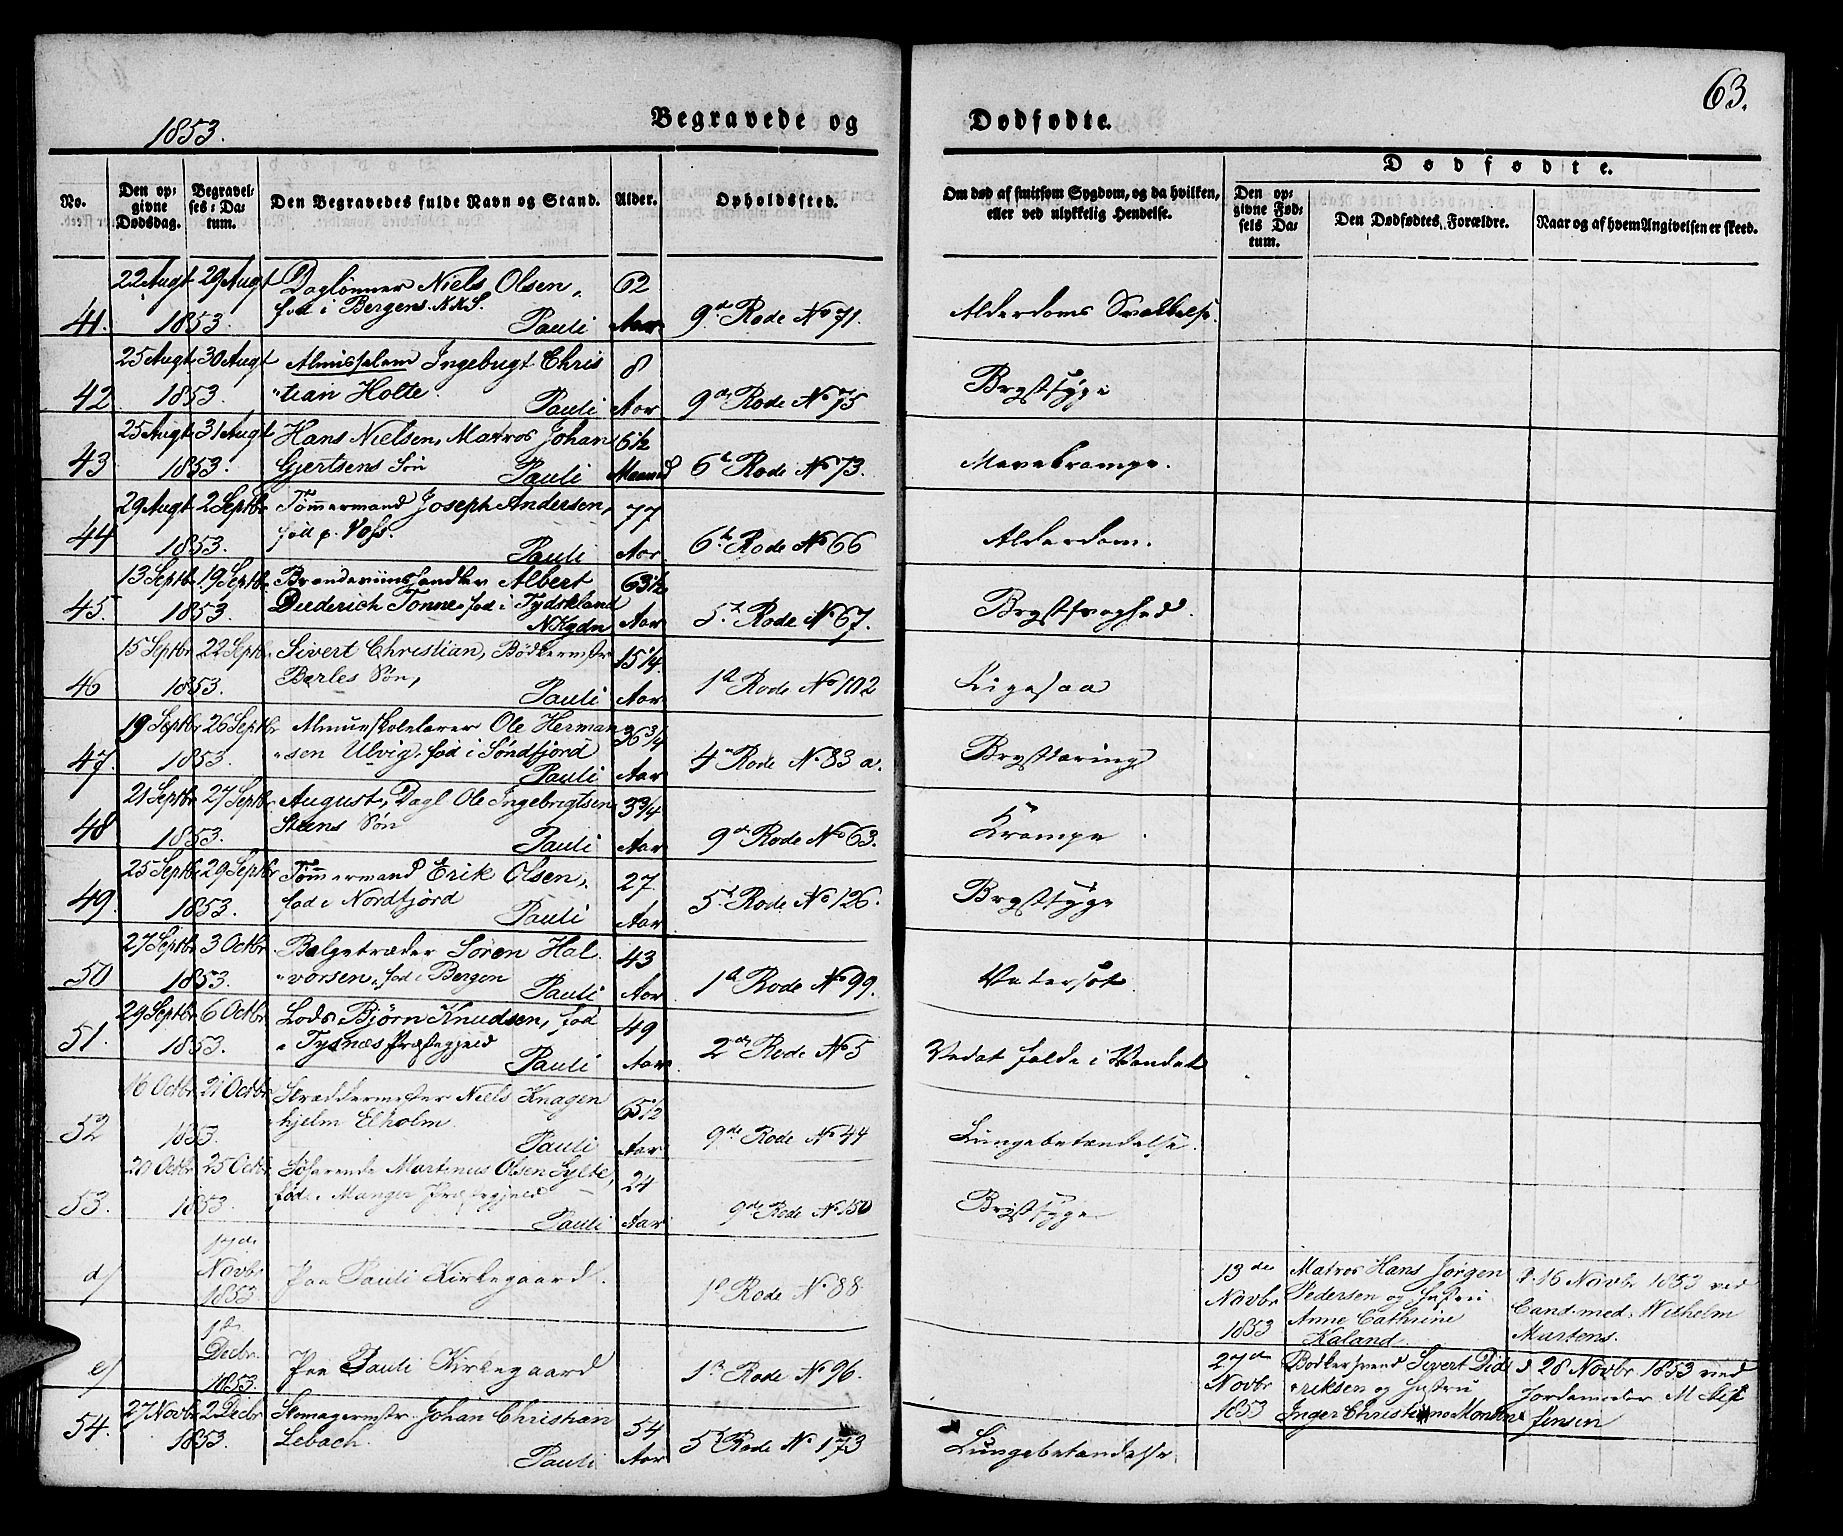 63.
1853. Begravede og Dødfødte.
Dødfødte.
No. Den opgivne Dødsdag. Begravelses-Datum. Den Begravedes fulde Navn og Stand. Alder. Opholdssted. Om død af smitsom Sygdom, og da hvilken, eller ved ulykkelig Hendelse. Den opgivne Fødsels Datum. Den Dødfødtes Forældre. Naar og af hvem Angivelsen er skeed.
22 Augt 29 Augt Daglønner Niels Olsen, 62
fød i Bergen. N.K.S.
41. 1853. Pauli Aar 9de Rode No 71. Alderdoms Svækkelse.
25 Augt 30 Augt Almisselem Ingebrigt Chris 8
42 1853. tian Holte. Pauli Aar 9de Rode No 75 Brystsyge
25 Augt 31 Augt Hans Nielsen, Matros Johan 6 1/2
43 1853. Gjertsens Søn Pauli Maaned 6te Rode No 73. Mavekrampe.
29 Augt 2 Septbr Tømmermand Joseph Andersen, 77
fød p. Voss.
44 1853. Pauli Aar 6te Rode No 66 Alderdom.
13 Septbr 19 Septbr Brændeviinshandler Albert 63 1/2
45. 1853. Diederich Tonne, fød i Tydskland
NKgdn Aar 5te Rode No 67. Brystsvaghed.
15 Septbr 22 Septbr Sivert Christian, Bødkermstr 15 1/4
46 1853. Berles Søn, Pauli Aar 1ste Rode No 102 Ligesaa
19 Septbr 26 Septbr Almueskolelærer Ole Herman 36 3/4
47. 1853. sen Ulvig, fød i Søndfjord
Pauli Aar 4de Rode No 83 a. Brysttæring
21 Septbr 27 Septbr August, Dagl Ole Ingebrigtsen 3 3/4
48 1853. Steens Søn Pauli Aar 9de Rode No 63. Krampe
25 Septbr 29 Septbr Tømmermand Erik Olsen, 27
49. 1853. fød i Nordfjord Pauli Aar 5te Rode No 126. Brystsyge
27 Septbr 3 Octbr Belgetræder Søren Hal 43
50 1853. vorsen, fød i Bergen Pauli Aar 1ste Rode No 99. Vatersot
29 Septbr 6 Octbr Lods Bjørn Knudsen, fød 49
51. 1853. i Tysnæs Præstegjeld
Pauli Aar 2den Rode No 5 Vedat falde i Vandet
16 Octbr 21 Octbr Skræddermester Niels Knagen 65 1/2
hjelm Elholm
52 1853. Pauli Aar 9de Rode No 44 Lungebetændelse.
20 Octbr 25 Octbr Søfarende Martinus Olsen Sylte, 24
53. 1853. fød i Manger Præstegjeld
Pauli Aar 9de Rode No 150 Brystsyge
d) Novbr 1853 Paa Pauli Kirkegaard. 1ste Rode No 88 13de Novbr 1853 Matros Hans Jørgen
Pedersen og Hustru
Anne Cathrine
Kaland d. 16 Novbr 1853 ved
Cand. med. Wilhelm
Martens.
e) 1ste Decbr 1853. Paa Pauli Kirkegaard 1ste Rode No 96. 27de Novbr 1853 Bødkersvend Sivert Did
riksen og Hustru
Inger Christine Monsen d 28 Novbr 1853 ved
Jordemoder M
Jensen
27 Novbr 2 Decbr Skomagermstr. Johan Christian 54
54. 1853. Lebach. Pauli Aar 5te Rode No 173 Lungebetændelse